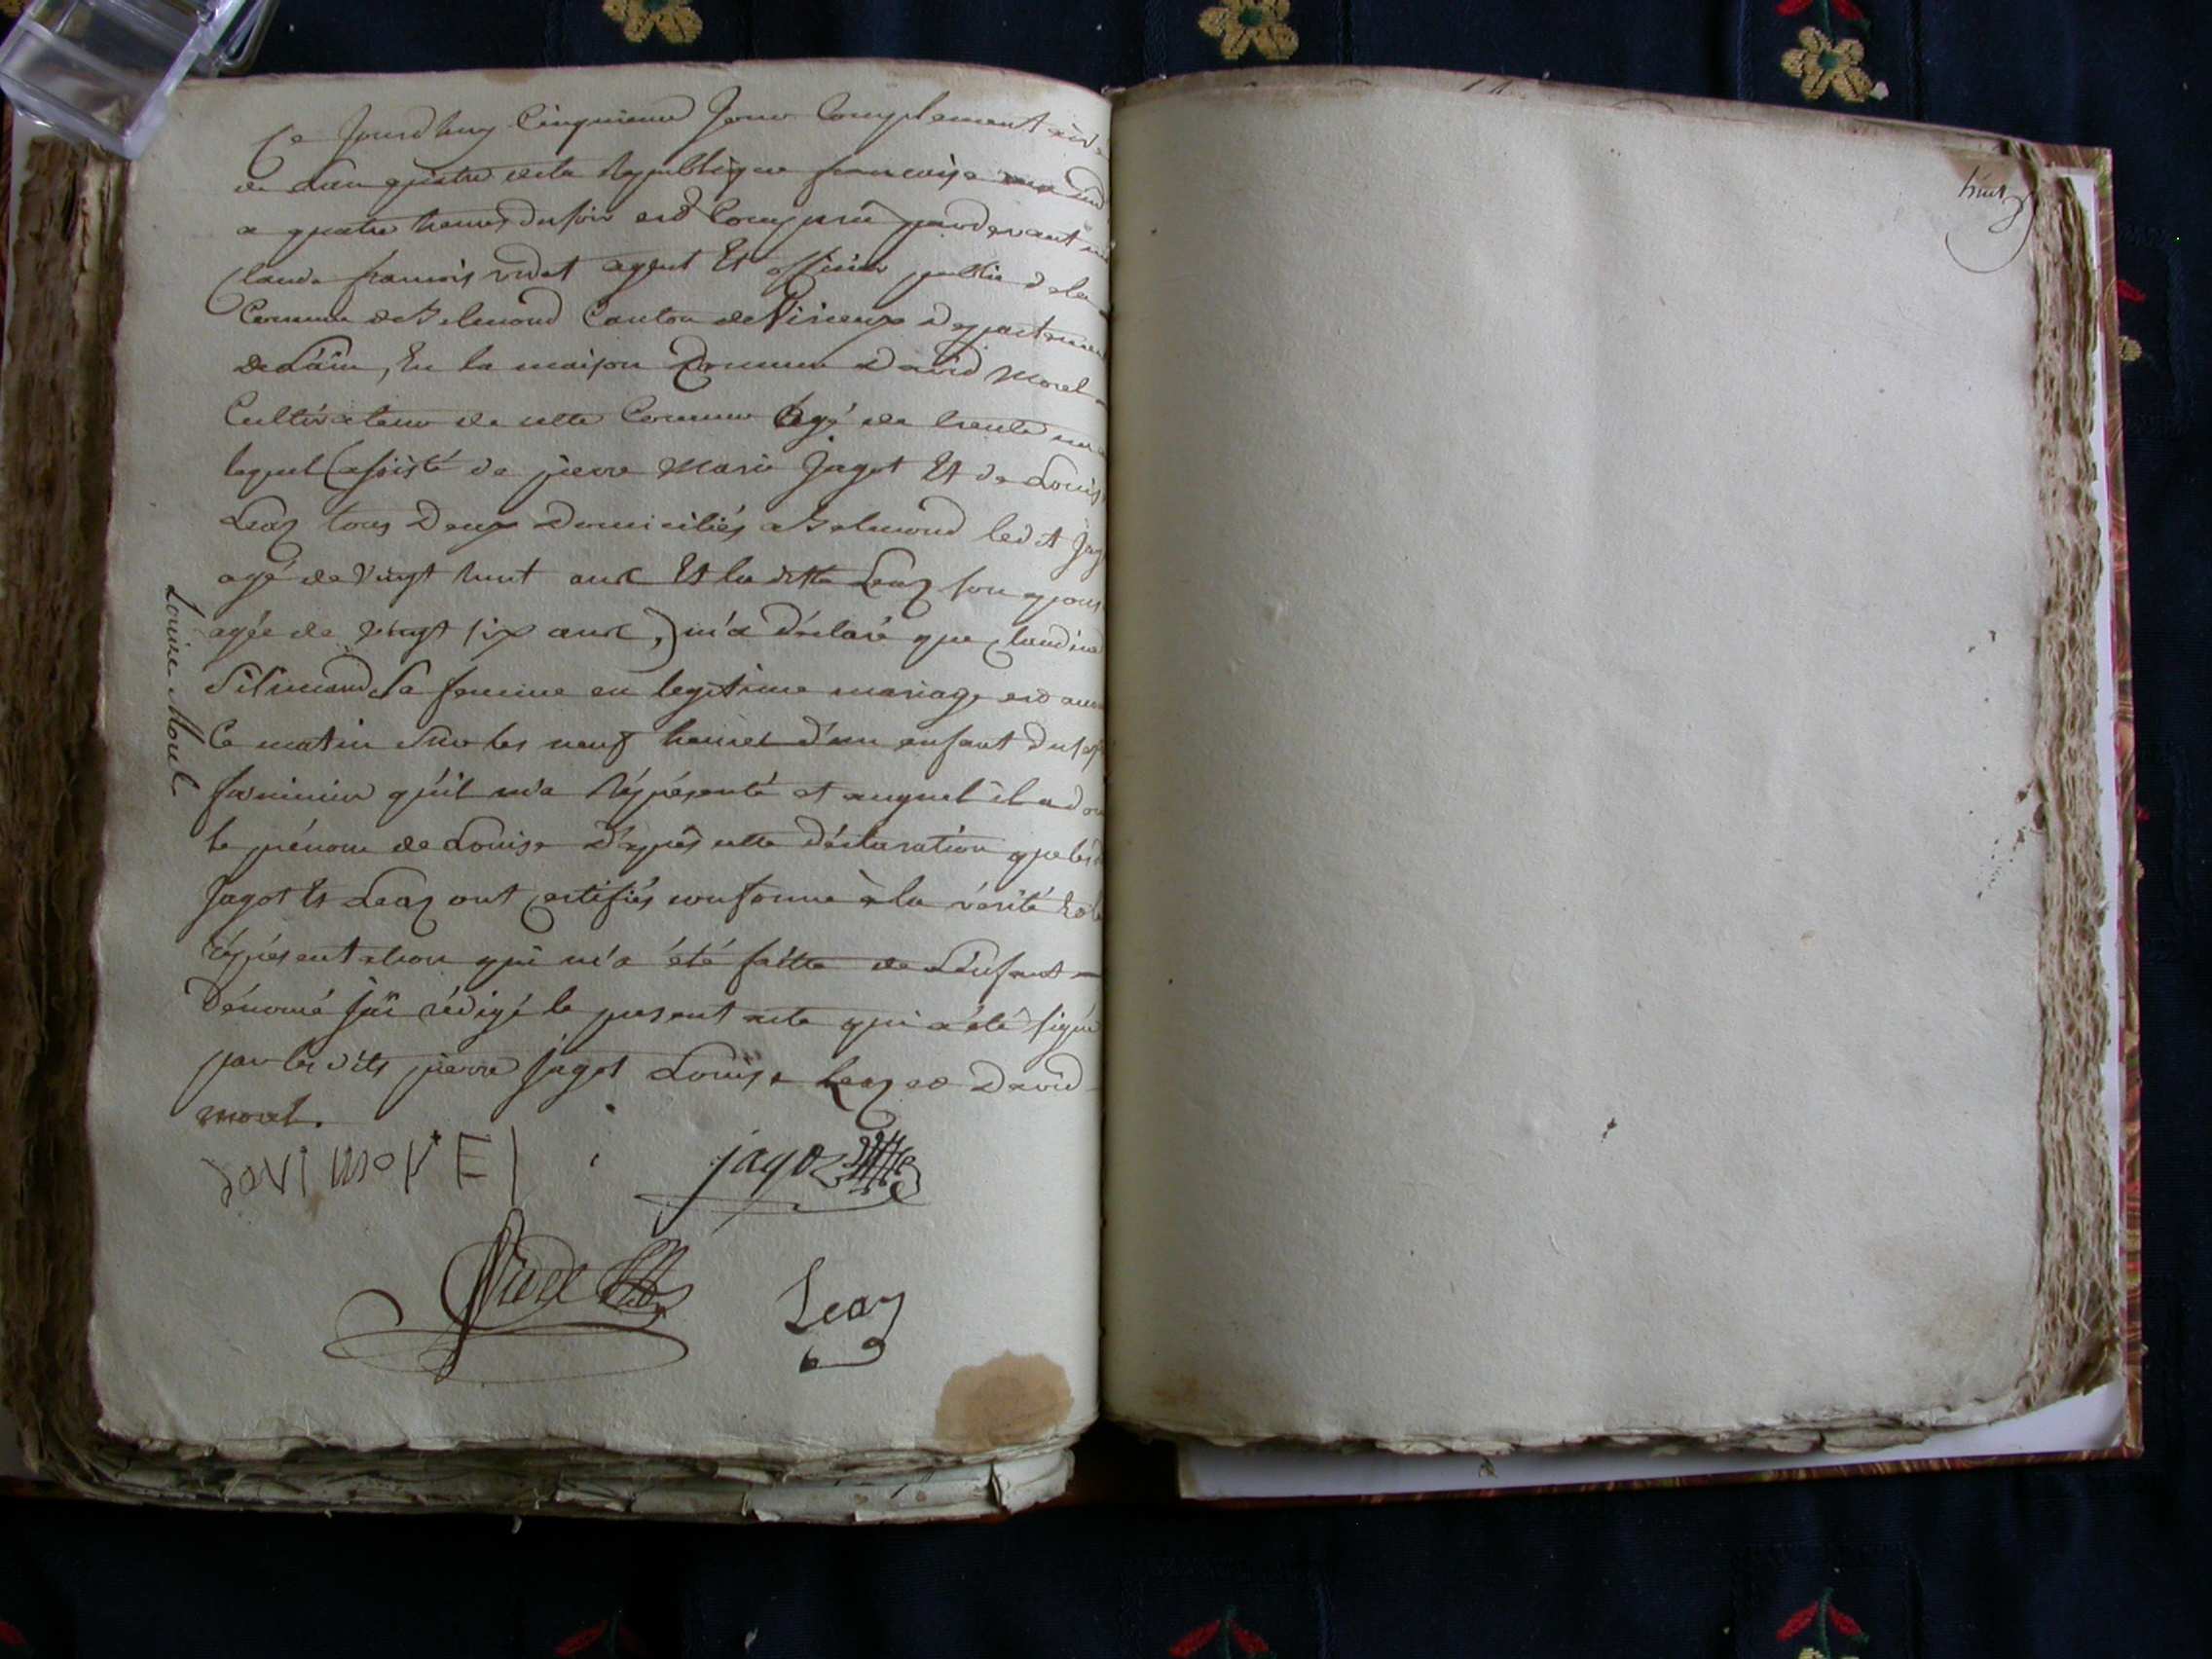 Ce Jourdhuy Cinquieme Jour Complementaire
de L'an quatre de la République francoise
a quatre heures du soir est Comparu pardevant
Claude francois videt agent Et officier public de la
Commune de Belmond Canton de Virieux Departement
de L'áin, En la maison Commune David Morel
Cultivateur de cette Commune âgé de trente
lequel (assisté de pierre Marie Jagot Et de Louise
Leaz tous Deux Domiciliés a Belmond ledit Jagot
agé de Vingt huit ans Et la ditte Leaz son epouse
agée de vingt six ans,) m'a déclaré que Claudine
sa femme en legitime mariage est
Ce matin Sur les neuf heures d'un enfant du sexe
feminin qu'il m'a Réprésenté et auquel il a donné
le prénom de Louise D'après cette Déclaration que les
Jagot Et Leaz ont Certifiés conforme à la vérité Et la
réprésentation qui m'a été faitte de L'enfant
Dénomé j'ai rédigé le present acte qui a été signé
par les dits pierre Jagot Louise Leaz et David
morel.
Louise Morel
jagot
Videt
Leaz
huit